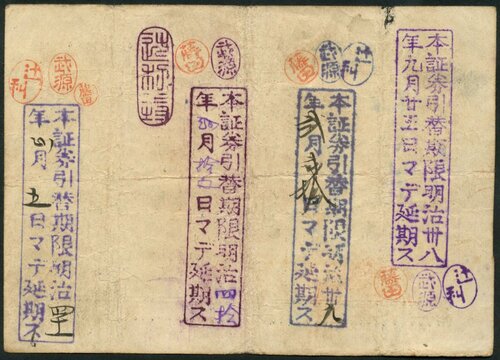 本証券引替期限明治卅八
年九月廿五日マデ延期ス
辻利
武源
本証券引替期限明治卅九
年弐月壱拾日マデ延期ス
辻利
武源
本証券引替期限明治四拾
年
月拾五日マデ延期ス
武源
本証券引替期限明治四十
年四月五日マデ延期ス
辻利
武源